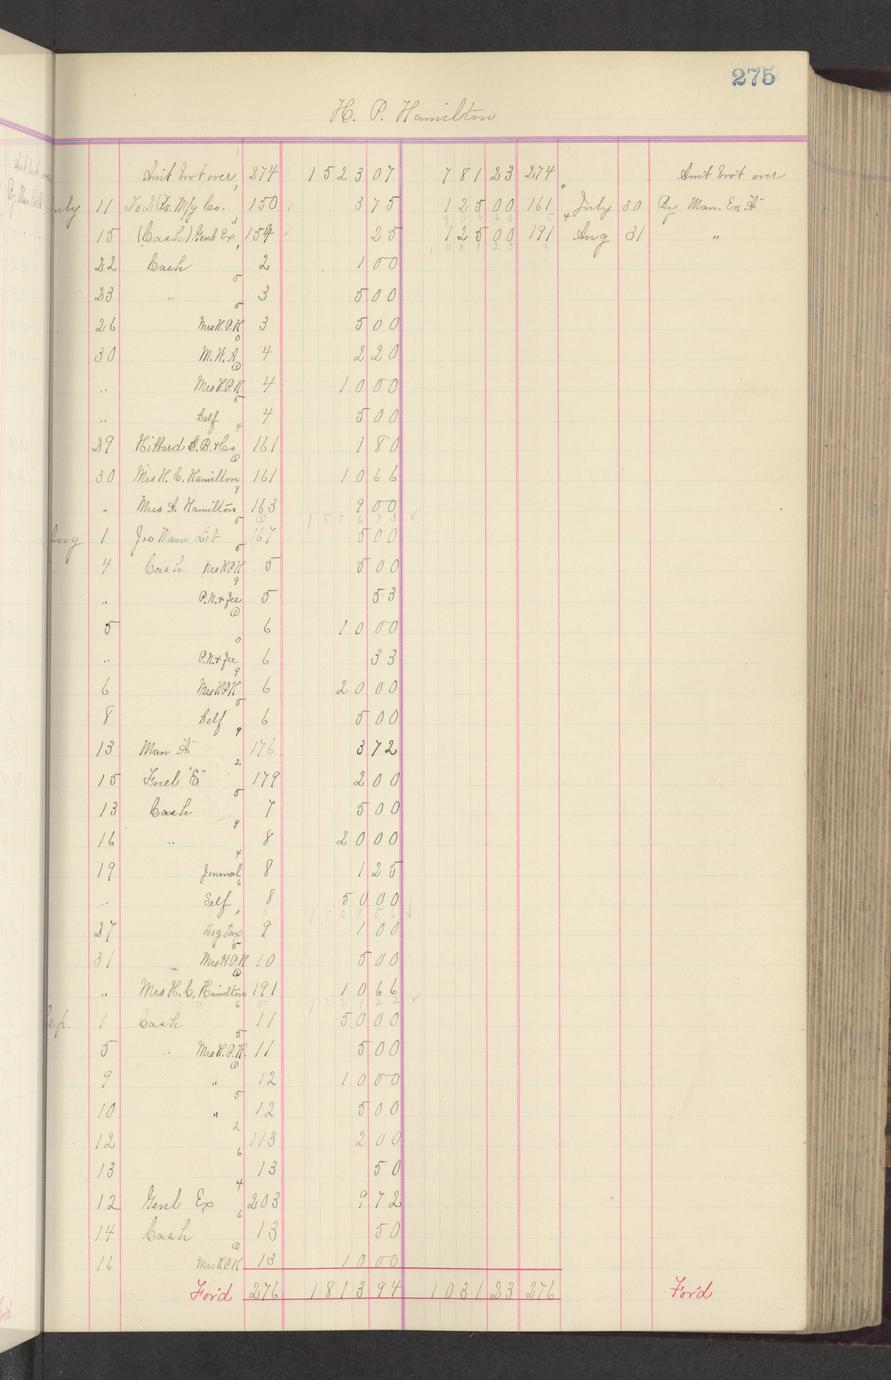 275
H. P. Hamilton
Amt brot over 274 1523 07 781 23 274 Amt brot over
July 11 To 2 Rs. M/g Co. 150 3 75 125 00 161 July 30 By Man. Ex. A
15 (Cash) Genl Ex 154 25 125 00 191 Aug 31 "
22 Cash 2 1 00
23 " 3 5 00
26 Mrs H.P.H 3 5 00
30 M.W.A. 4 2 20
" Mrs H.P.H 4 10 00
" Self 4 5 00
29 Hibbard S.B. & Co 161 1 80
30 Mrs H. C. Hamilton 161 10 66
" Mrs A. Hamilton 163 9 00
Aug 1 Joe Mann 167 5 00
4 Cash Mrs H.P.H 5 5 00
" P.N. & Jee 5 53
5 6 10 00
" P.N. & Jee 6 33
6 Mrs H.P.H 6 20 00
8 Self 6 5 00
13 Man A 176 3 72
15 Fuel "E" 179 2 00
13 Cash 7 5 00
16 " 8 20 00
19 8 1 25
" Self 8 50 00
27 Dog tax 9 1 00
31 Mrs H.P.H 10 5 00
" Mrs H. C. Hamilton 191 10 66
Sep. 1 Cash 11 50 00
5 " Mrs H.P.H. 11 5 00
9 " 12 10 00
10 " 12 5 00
12 113 2 00
13 13 50
12 Genl Ex 203 9 72
14 Cash 13 50
16 Mrs H.P.H 13 10 00
For'd 276 1813 94 1031 23 276 For'd